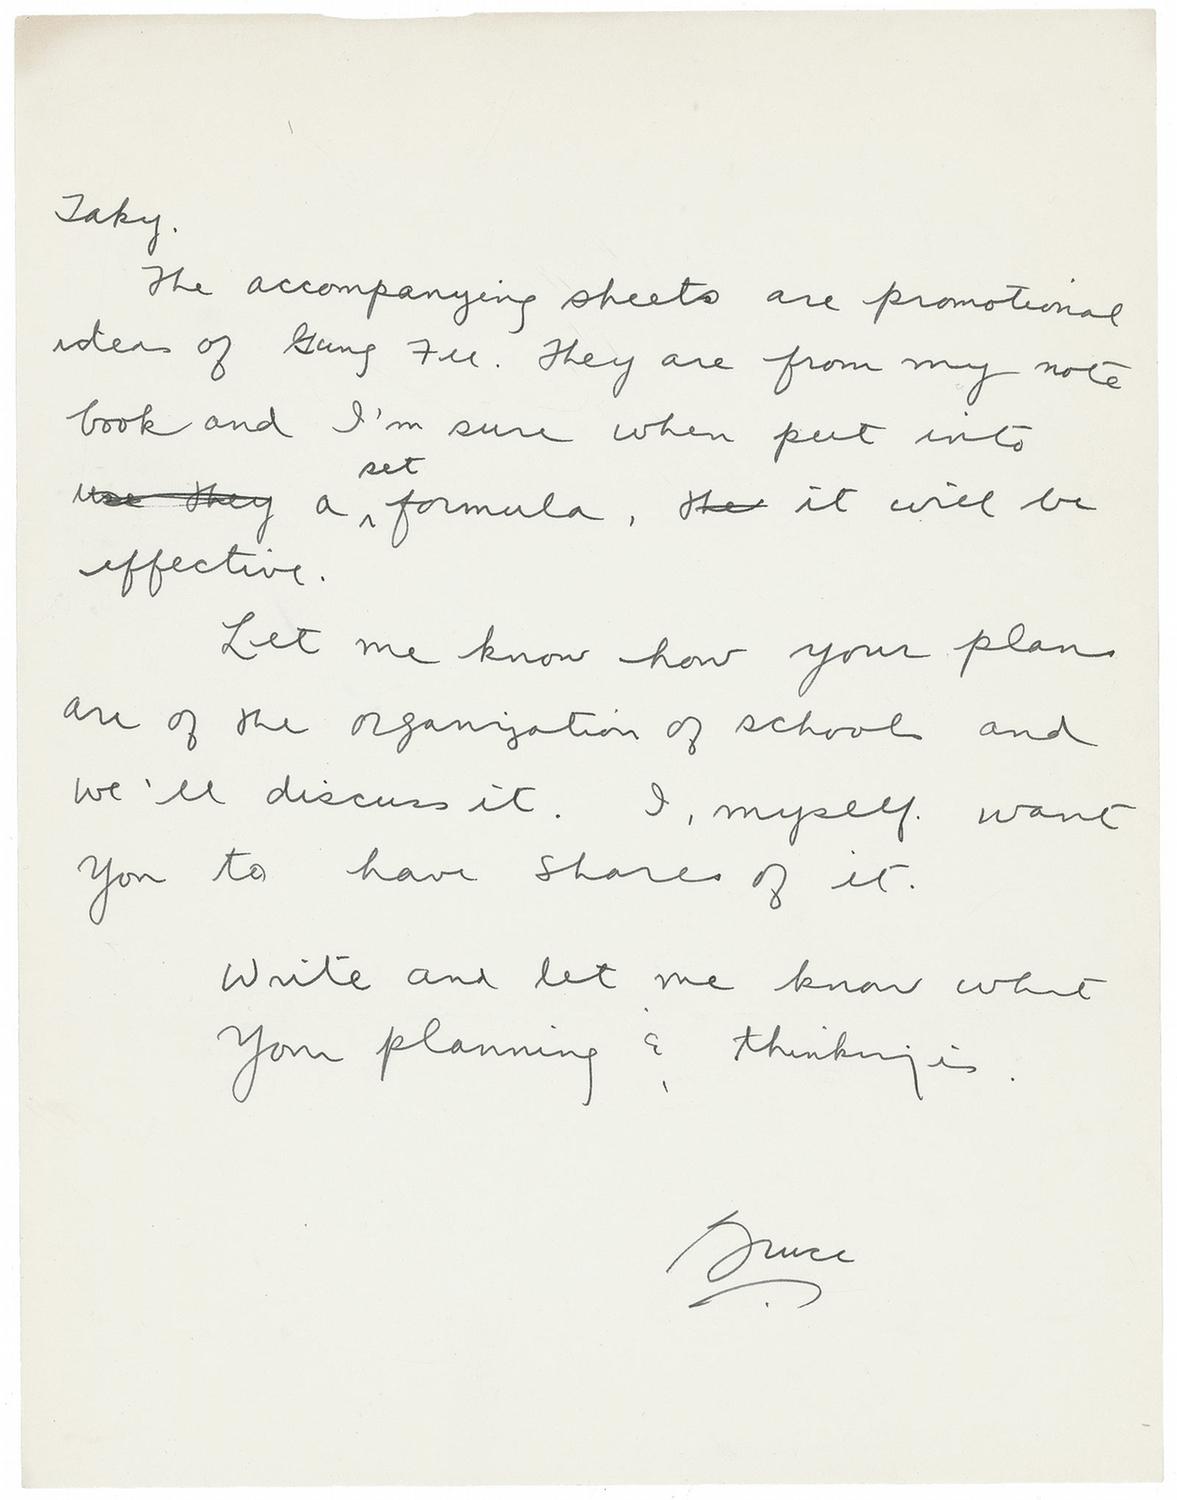 Taky.
The accompanying sheets are promotional
ideas of Gung Fu. They are from my note
book and I'm sure when put into
use they a set formula, the it will be
effective.
Let me know how your plans
are of the organization of schools and
we'll discuss it. I, myself. want
You to have shares of it.
Write and let me know what
Your planning & thinking is.
Bruce